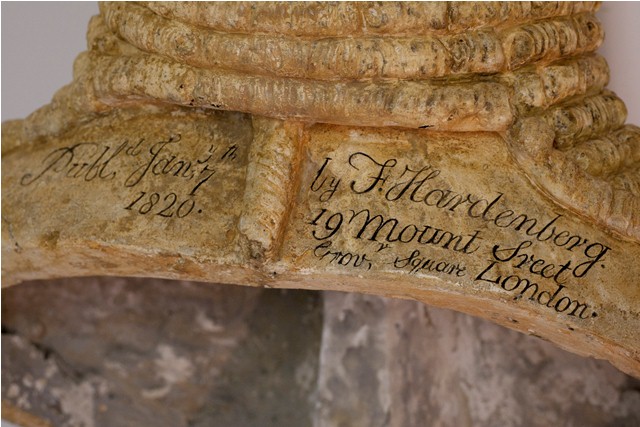 Publ.d Jan.y 7th
1820.
by F. Hardenberg.
19 Mount Sreet
Grov.r Square London.